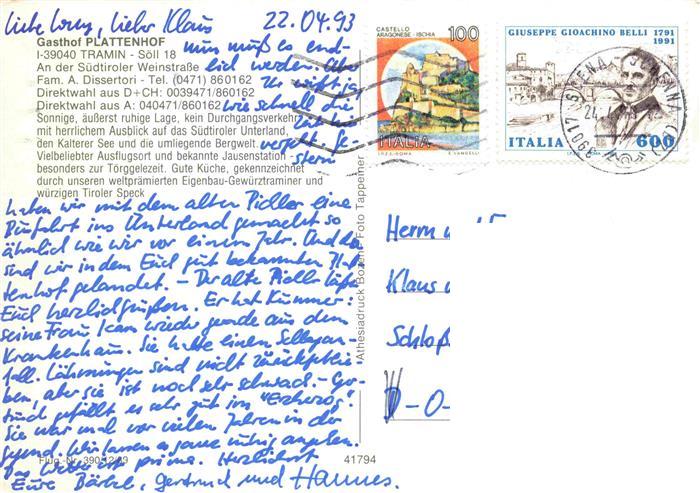 Liebe Lony, lieber Klaus 22.04.93
Gasthof PLATTENHOF
I-39040 TRAMIN - Söll 18
An der Südtiroler Weinstraße
Fam. A. Dissertori - Tel. (0471) 860162
Direktwahl aus D+CH: 0039471/860162
Direktwahl aus A: 040471/860162
nun muß es end-
lich werden. Aber
Ihr wißt ja
wie schnell die
Zeit hier
vergeht. Ge-
stern
Sonnige, äußerst ruhige Lage, kein Durchgangsverkehr
mit herrlichem Ausblick auf das Südtiroler Unterland,
den Kalterer See und die umliegende Bergwelt.
Vielbeliebter Ausflugsort und bekannte Jausenstation -
besonders zur Törggelezeit. Gute Küche, gekennzeichnet
durch unseren weltprämierten Eigenbau-Gewürztraminer und
würzigen Tiroler Speck
haben wir mit dem alten Pichler eine
Rundfahrt ins Unterland gemacht so
ähnlich wie wir vor einem Jahr. Und da
sind wir in dem Euch gut bekannten Plat-
tenhof gelandet. - Der alte Pichler läßt
Euch herzlich grüßen. Er hat Kummer:
seine Frau kam wieder gerade aus dem
Krankenhaus. Sie hatte einen Schlagan-
fall. Lähmungen sind nicht zurückgeblie-
ben, aber sie ist noch sehr schwach. - Ger-
trud gefällt es sehr gut im "Erzherzog".
Sie war mal vor vielen Jahren in der
Gegend. Wir lassen es ganz ruhig angehen.
Das Wetter ist prima. Herzlichst
Eure Bärbel, Gertrud und Hannes.
Flug.-Nr. 390/12/89
41794
Athesiadruck Bozen - Foto Tappeiner
CASTELLO
ARAGONESE - ISCHIA
100
ITALIA
I.P.Z.S.-ROMA E. VANGELLI
GIUSEPPE GIOACHINO BELLI 1791
1991
ITALIA 600
Herrn
Klaus
Schloß
D-O-